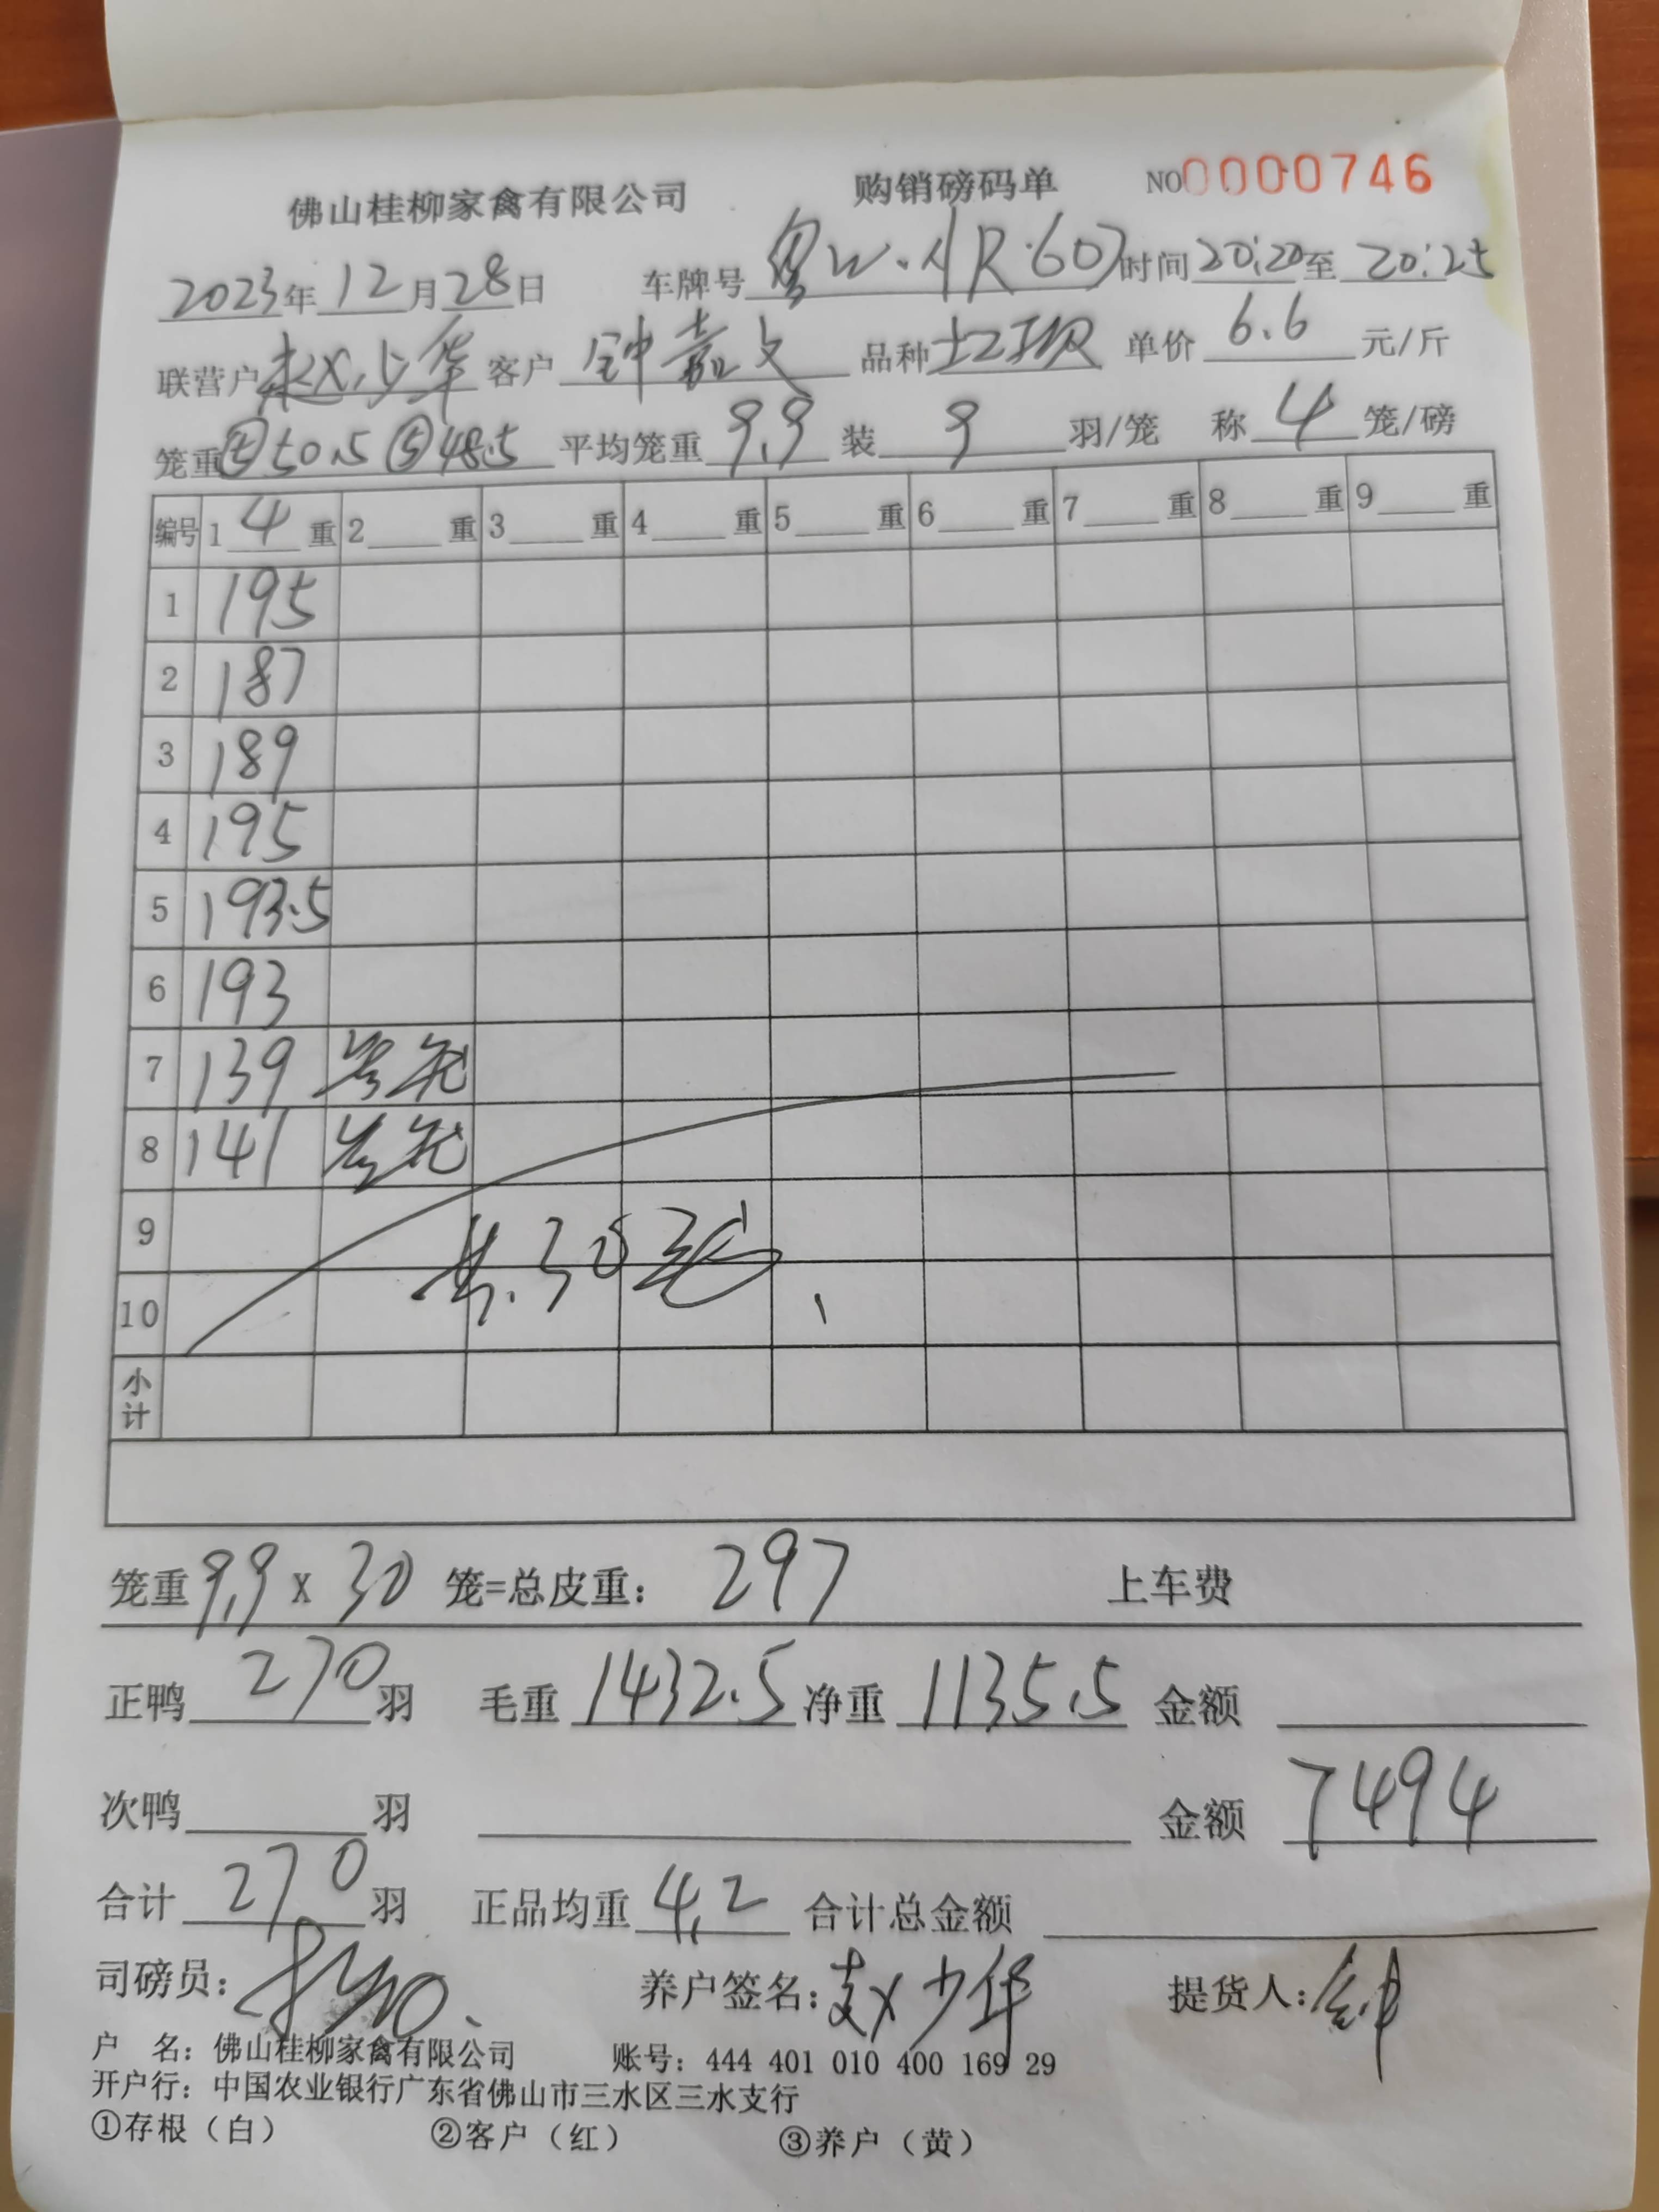 佛山桂柳家禽有限公司 购销磅码单 NO0000746
2023年12月28日 车牌号粤W·AR607时间20:20至20:25
联营户赵少华客户钟嘉文品种土2顶级单价6.6元/斤
笼重⑤50.5⑤48.5平均笼重9.9装9羽/笼 称4笼/磅
编号 1 4 重 2 重 3 重 4 重 5 重 6 重 7 重 8 重 9 重
1 195
2 187
3 189
4 195
5 193.5
6 193
7 139
8 141
9
共.30笼
10
小计
笼重9.9X30笼=总皮重:297 上车费
正鸭270羽 毛重1432.5净重1135.5金额
次鸭 羽 金额7494
合计270羽 正品均重4.2合计总金额
司磅员: 养户签名:赵少华 提货人:钟
户 名:佛山桂柳家禽有限公司 账号:444 401 010 400 169 29
开户行:中国农业银行广东省佛山市三水区三水支行
①存根(白) ②客户(红) ③养户(黄)